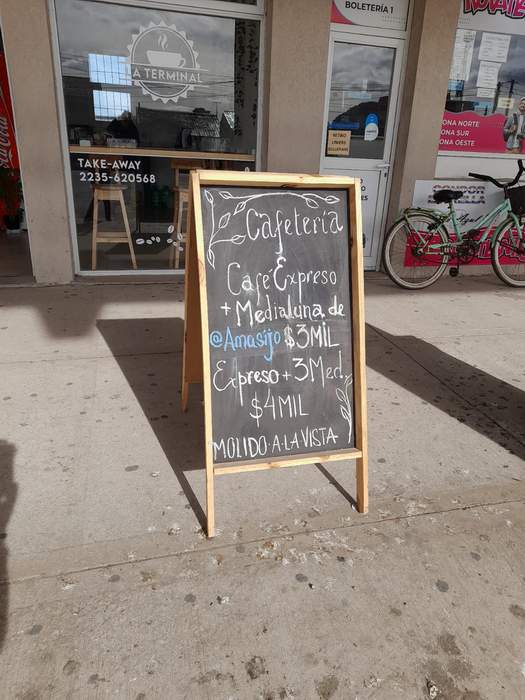 BOLETERÍA 1
A TERMINAL
TAKE-AWAY
2235-620568
RETIRO
ONA NORTE
ONA SUR
ONA OESTE
Cafetería
Café Expreso
+ Medialuna de
@Amasijo $3MIL
Expreso + 3 Med.
$4MIL
MOLIDO·A·LA VISTA